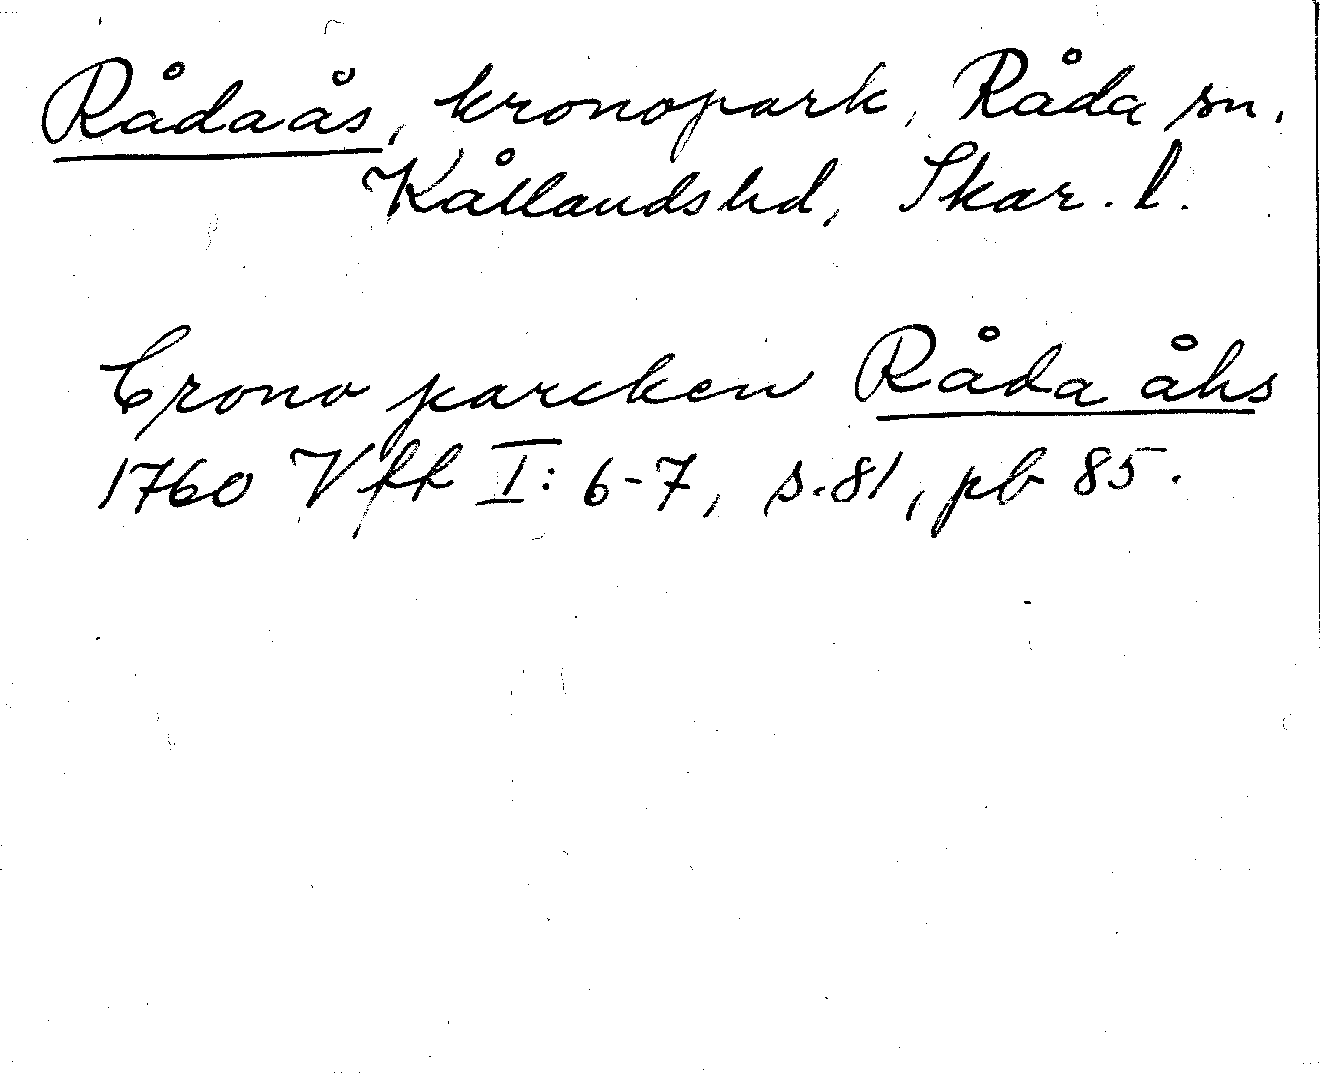 Rådaås, kronopark, Råda sn.
Kållandshd, Skar. l.
Crono parcken Råda åhs
1760 Vfk I: 6-7, s. 81, pb 85.